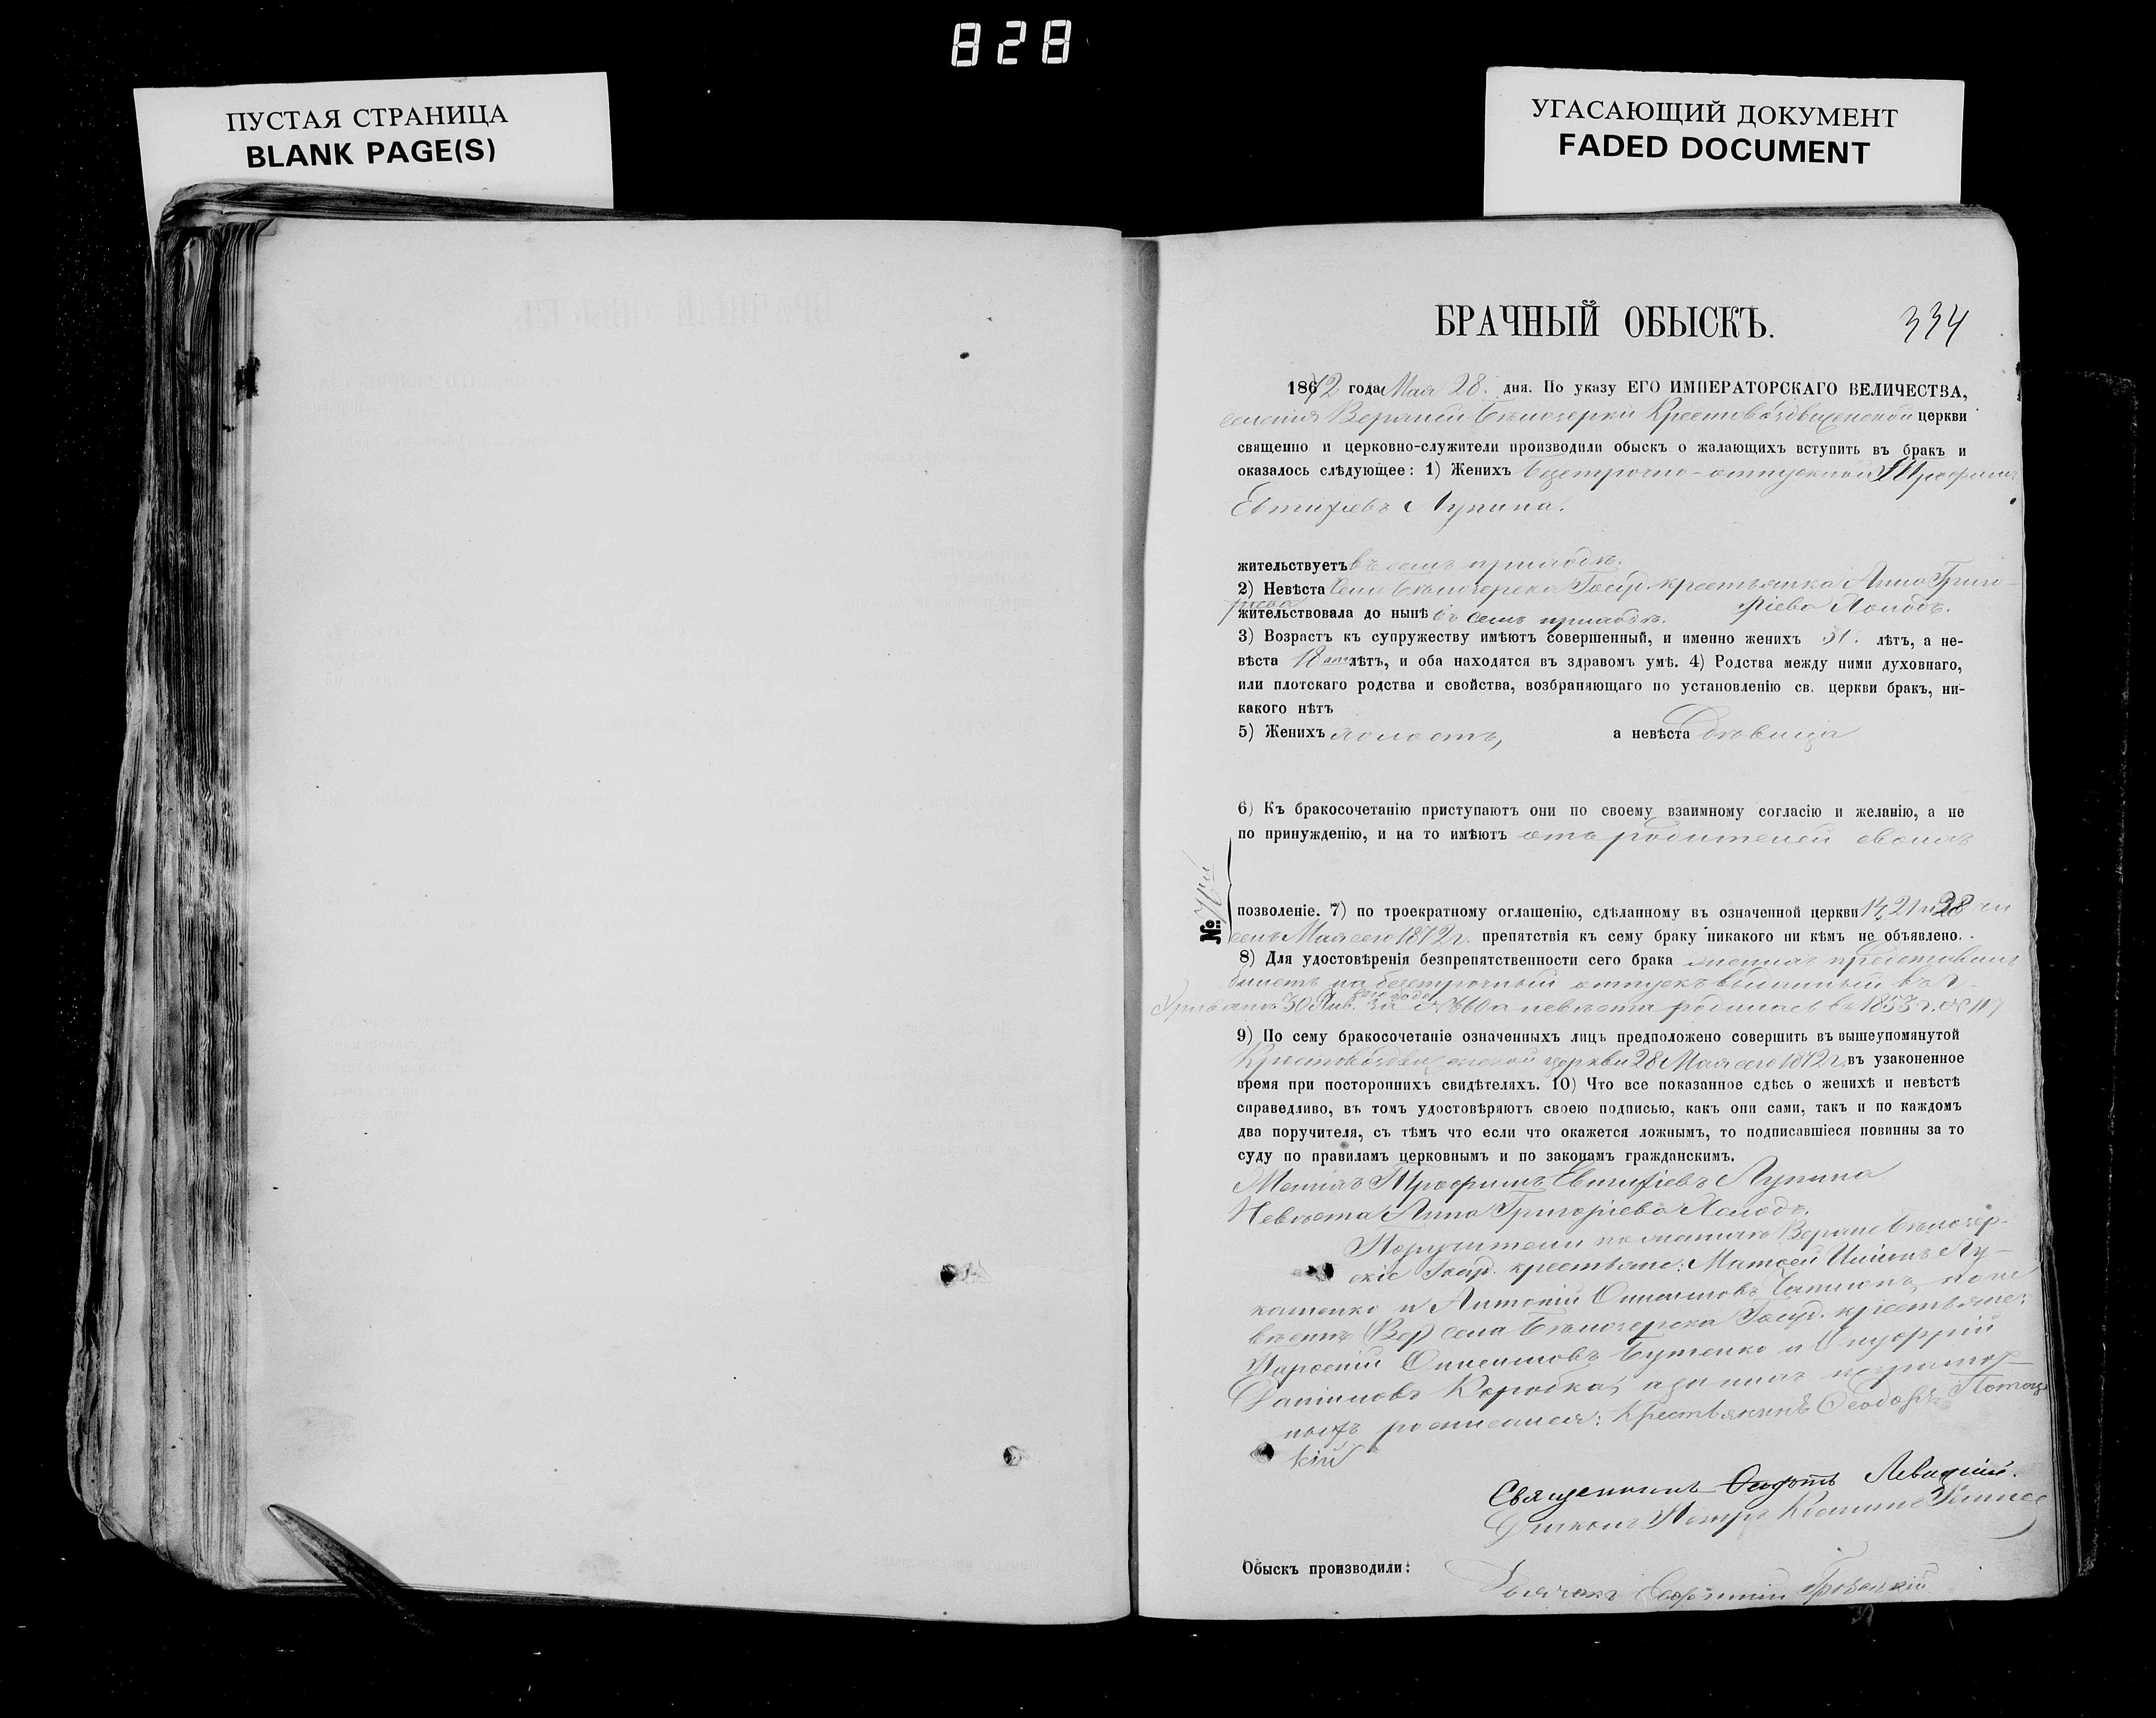 828
ПУСТАЯ СТРАНИЦА
BLANK PAGE(S)
УГАСАЮЩИЙ ДОКУМЕНТ
FADED DOCUMENT
БРАЧНЫЙ ОБЫСКЪ.
334
1872 года Мая 28. дня. По указу ЕГО ИМПЕРАТОРСКАГО ВЕЛИЧЕСТВА,
селенія Верхней Бѣлозерки Крестовоздвиженской церкви
священно и церковно-служители производили обыскъ о жалающихъ вступить въ бракъ и
оказалось слѣдующее: 1) Женихъ Безсрочно-отпускной Трофимъ
Евтифіевъ Лупина.
жительствуетъ въ семъ приходѣ.
2) Невѣста Села Бѣлозерска Госуд. крестьянка Анна Григо-
ріева ріева Холодъ.
жительствовала до нынѣ въ семъ приходѣ.
3) Возрастъ къ супружеству имѣютъ совершенный, и именно женихъ 31. лѣтъ, а не-
вѣста 18 лѣтъ, и оба находятся въ здравомъ умѣ. 4) Родства между ними духовнаго,
или плотскаго родства и свойства, возбраняющаго по установленію св. церкви бракъ, ни-
какого нѣтъ
5) Женихъ холостъ, а невѣста Дѣвица
6) Къ бракосочетанію приступаютъ они по своему взаимному согласію и желанію, а не
по принужденію, и на то имѣютъ отъ родителей своихъ
№
позволеніе. 7) по троекратному оглашенію, сдѣланному въ означенной церкви 14, 21 и 28 чи
селъ Мая сего 1872 г. препятствія къ сему браку никакого ни кѣмъ не объявлено.
8) Для удостовѣренія безпрепятственности сего брака женихъ представилъ
билетъ на безсрочный отпускъ выданный въ г.
30 Янв. сего года за № а невѣста родилась въ 1853 г. №
9) По сему бракосочетаніе означенныхъ лицъ предположено совершить въ вышеупомянутой
Крестовоздвиженской церкви 28 Мая сего 1872 г. въ узаконенное
время при постороннихъ свидѣтеляхъ. 10) Что все показанное сдѣсь о женихѣ и невѣстѣ
справедливо, въ томъ удостовѣряютъ своею подписью, какъ они сами, такъ и по каждомъ
два поручителя, съ тѣмъ что если что окажется ложнымъ, то подписавшіеся повинны за то
суду по правиламъ церковнымъ и по законамъ гражданскимъ.
Женихъ Трофимъ Евтифіевъ Лупина
Невѣста Анна Григоріева Холодъ.
Поручители по женихѣ Верхне Бѣлозер-
скіе Госуд. крестьяне: Матвей Лу-
кашенко и Антоній Онисимовъ по не
вѣстѣ Вер села Бѣлозерска Госуд. крестьяне:
Онисимовъ Бутенко и Онуфрій
Даніиловъ Коробка, а за нихъ неграмот-
ныхъ росписался: Крестьянинъ Ѳеодоръ Потоц
кій
Священникъ Левицкій.
Обыскъ производили: